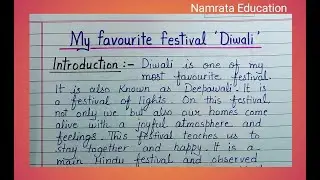 Namrata Education
My favourite festival 'Diwali'
Introduction :- Diwali is one of my
most favourite festival.
It is also known as Deepawali. It is
a festival of lights. On this festival
not only we but also our homes come
alive with a joyful atmosphere and
feelings. This festival teaches us to
stay together and happy. It is a
main Hindu festival and observed